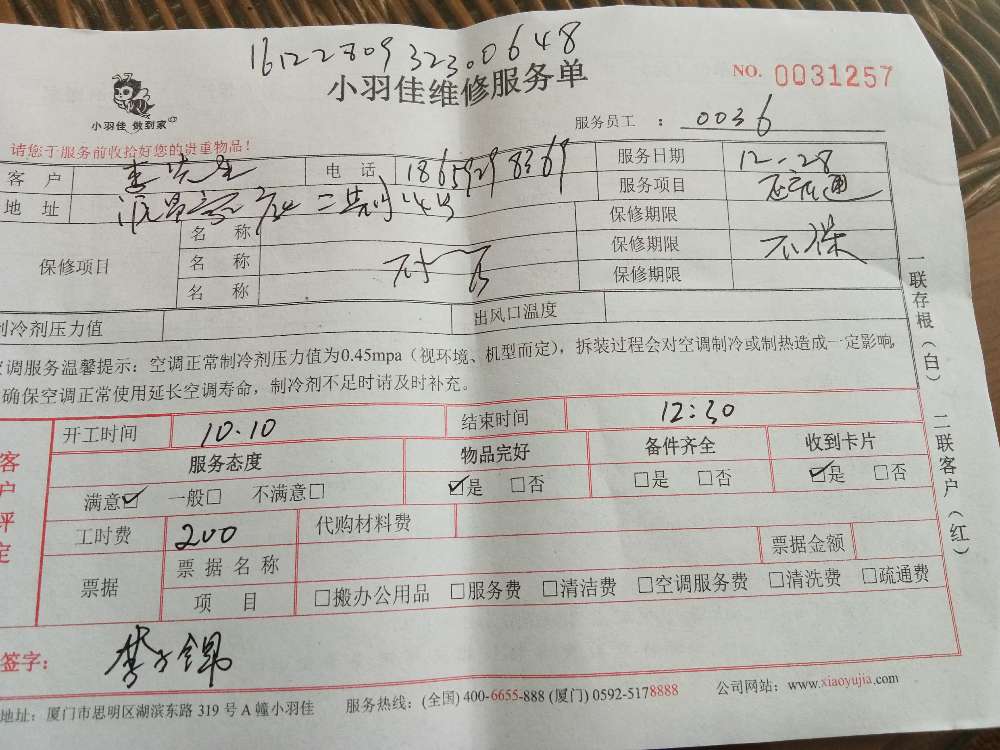 161227093230648
小羽佳维修服务单
NO. 0031257
小羽佳 做到家
服务员工 : 0036
请您于服务前收拾好您的贵重物品!
客 户 李先生 电 话 18659298369 服务日期 12-28
地 址 二期 服务项目
保修项目 名 称 保修期限
名 称 保修期限 不保
名 称 保修期限
制冷剂压力值 出风口温度
空调服务温馨提示：空调正常制冷剂压力值为0.45mpa（视环境、机型而定），拆装过程会对空调制冷或制热造成一定影响,
确保空调正常使用延长空调寿命，制冷剂不足时请及时补充。
一联存根（白） 二联客户（红）
客户评定
开工时间 10.10 结束时间 12:30
服务态度 物品完好 备件齐全 收到卡片
满意☑ 一般□ 不满意□ ☑是 □否 □是 □否 ☑是 □否
工时费 200 代购材料费
票据 票据名称 票据金额
项 目 □搬办公用品 □服务费 □清洁费 □空调服务费 □清洗费 □疏通费
签字:
地址: 厦门市思明区湖滨东路 319 号 A 幢小羽佳 服务热线: (全国) 400-6655-888 (厦门) 0592-5178888 公司网站: www.xiaoyujia.com